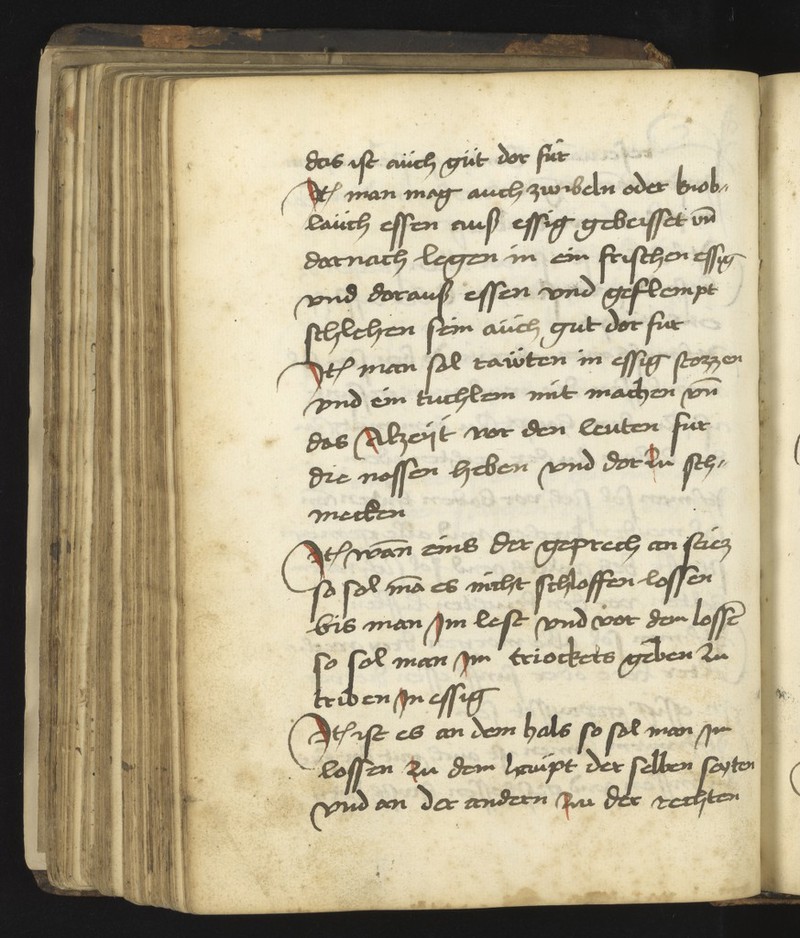 das ist aüch güt dor für
It(em) man mag auch zwibeln oder knob-
laüch essen auß essig gebeisset vn̄
dornach legen in ein frischen essig
vnd dorauß essen vnd geflempt
schlehen sein aüch gut dor fur
It(em) man sol rawten in essig stozzen
vnd ein tuchlein mit machen vn̄
das Alzeÿt vor den leuten fur
die nassen heben vnd dor zu sch-
mecken
It(em) wān eins der geprech an
so sol mā es nicht schloffen lossen
bis man Im lest vnd vor dem lossē
so sol man Im triockers geben zu
triben In essig
It(em) ist es an dem hals so sol man Im
lossen zu dem haüpt der selben seyten
vnd an der andern zu der rechten